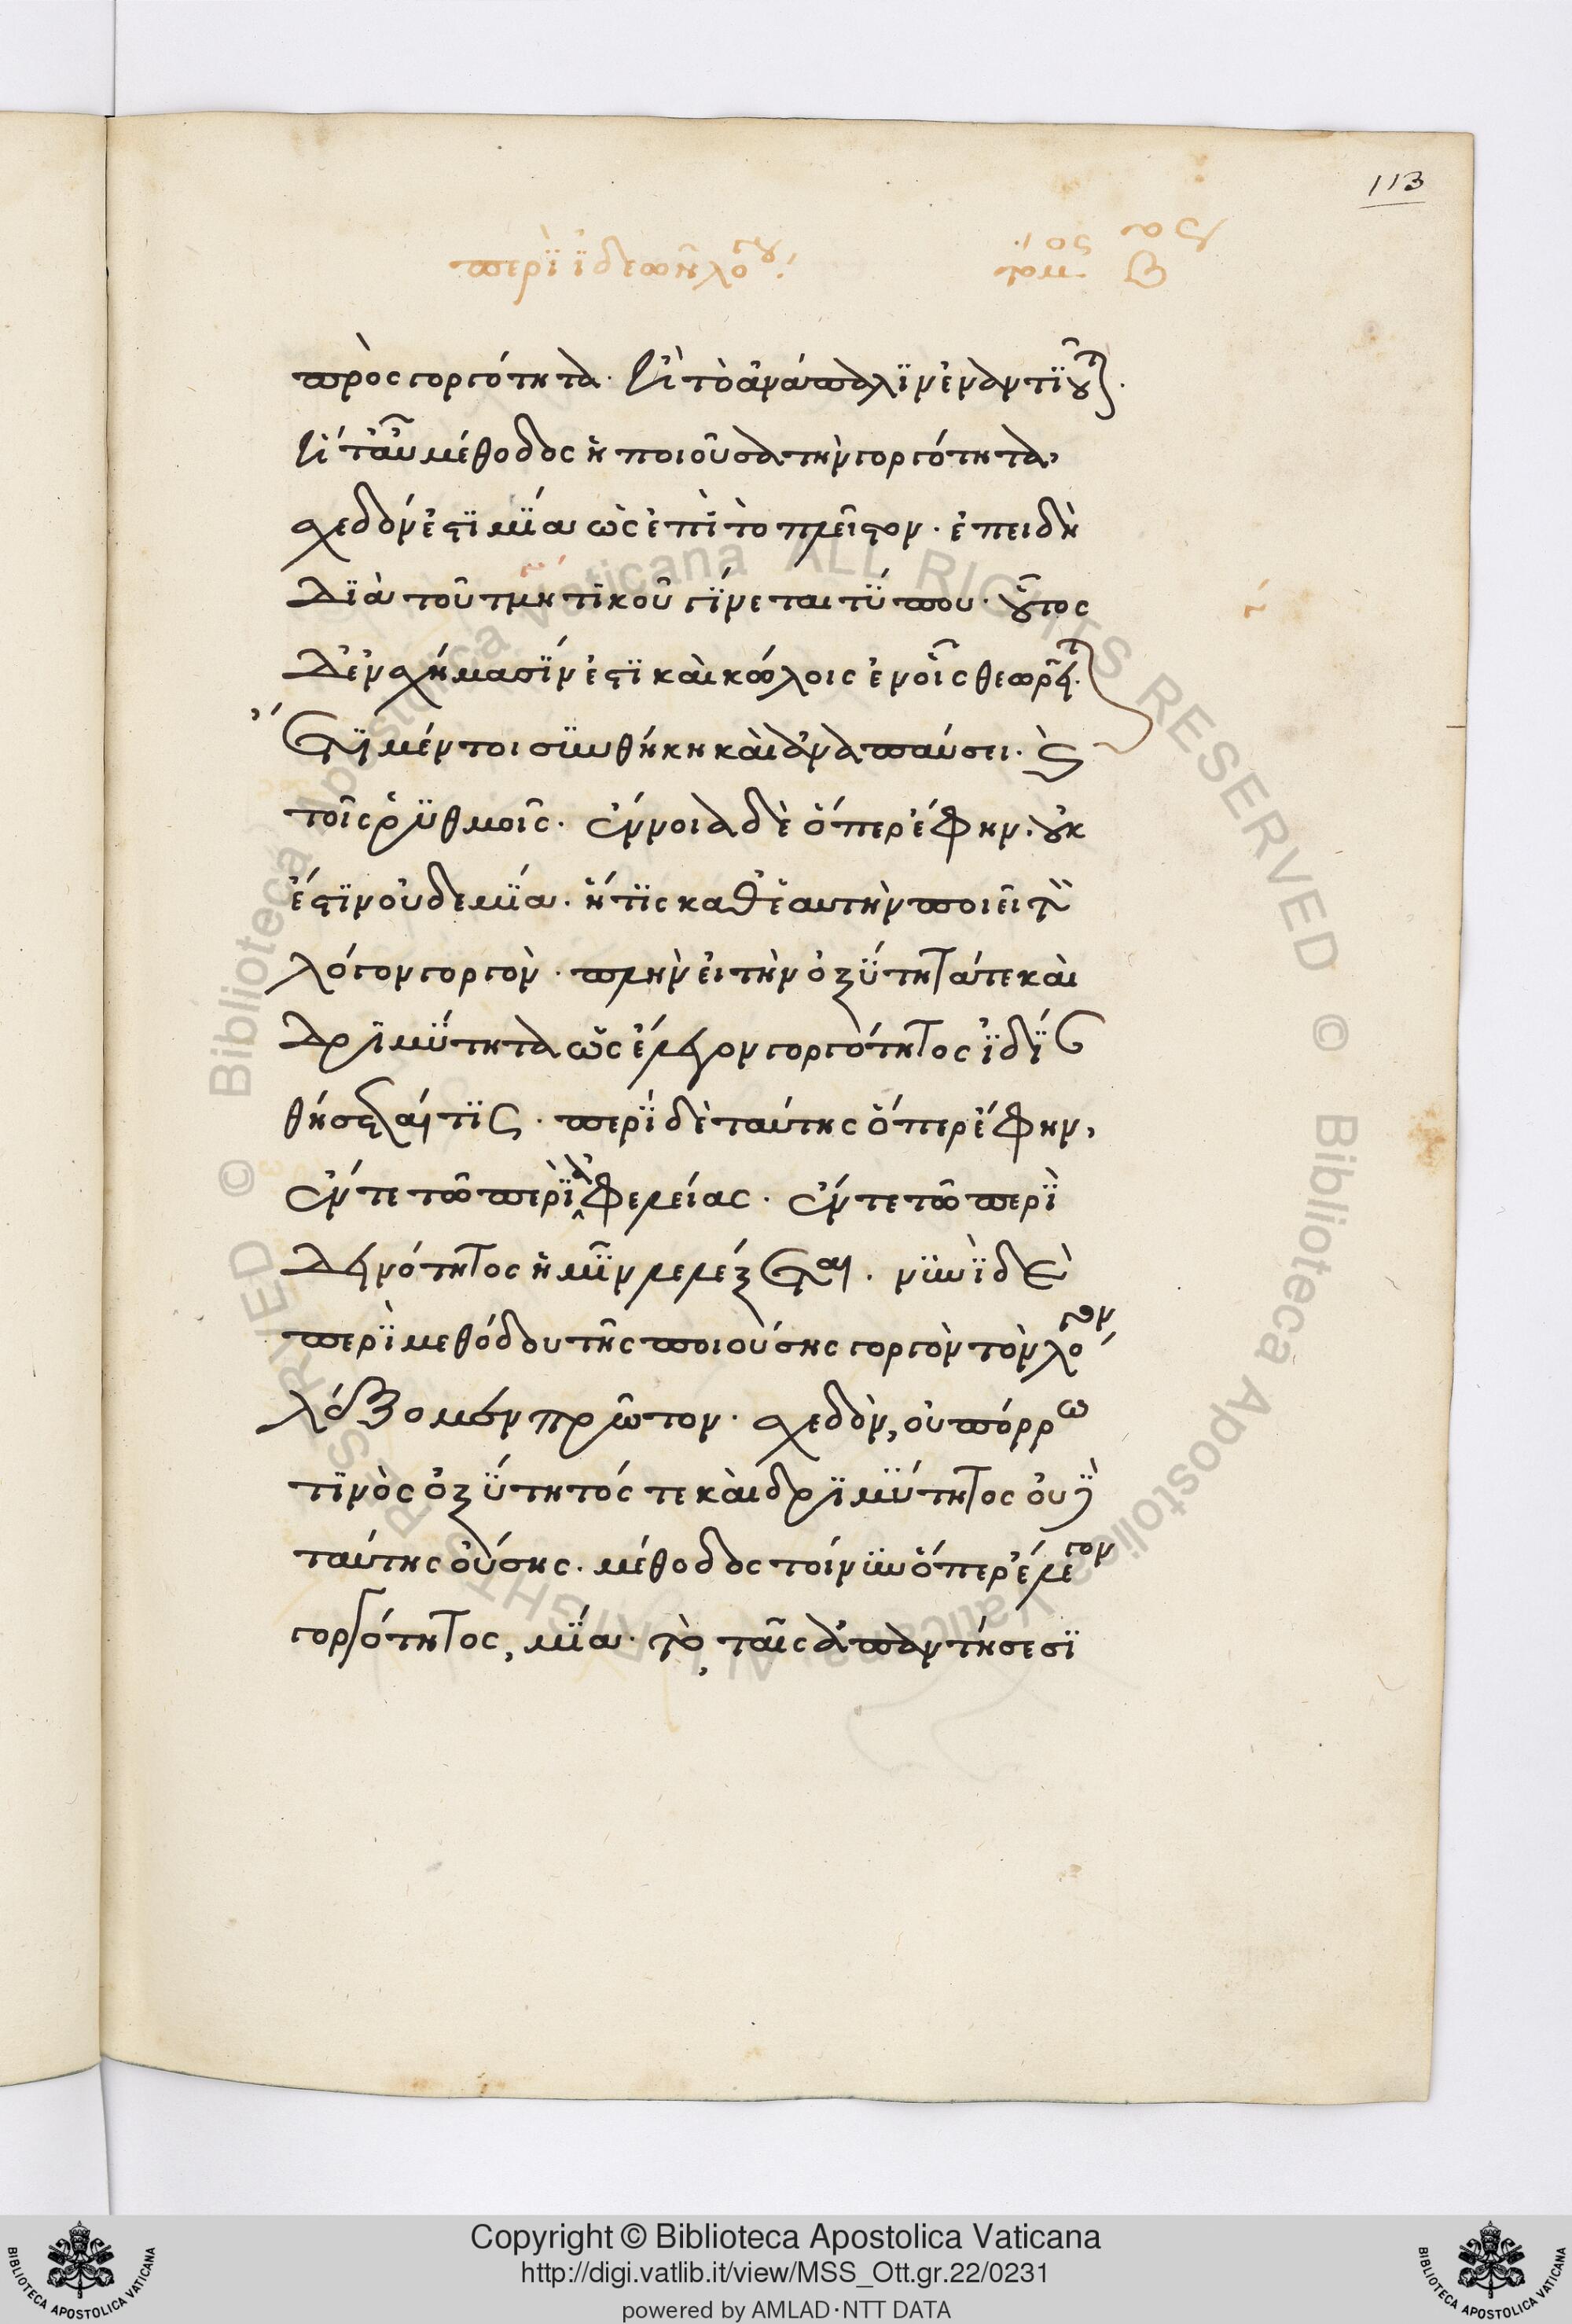 113
περὶ ἰδεῶν λόγου
τόμος β ος
πρὸς γοργότητα. καὶ τὸ ἀνάπαλιν ἐναντιοῦται.
καὶ ταῦ μέθοδος ἡ ποιοῦσα τὴν γοργότητα,
σχεδόν ἐστι μία ὡς ἐπὶ τὸ πλεῖστον. ἐπειδὴ
διὰ τοῦ τμητικοῦ γίνεται τύπου. οὗτος
δ' ἐν σχήμασίν ἐστι καὶ κώλοις ἐν οἷς θεωρεῖται.
ἔτι μέντοι συνθήκη καὶ ἀναπαύσει. καὶ
τοῖς ῥυθμοῖς. ἔννοια δὲ ὅπερ ἔφην. οὐκ
ἔστιν οὐδεμία. ἥτις καθ' ἑαυτὴν ποιεῖ τὸν
λόγον γοργὸν. πλὴν εἰ τὴν ὀξύτητά τε καὶ
δριμύτητα ὡς ἔλεγον γοργότητος ἰδίᾳ
θήσεταί τις. περὶ δὲ ταύτης ὅπερ ἔφην,
ἔν τε τῶ περὶ ἀφελείας. ἔν τε τῶ περὶ
δεινότητος ἡμῖν λελέξεται. νυνὶ δὲ
περὶ μεθόδου τῆς ποιούσης γοργὸν τὸν λόγον
λέξομεν πρῶτον. σχεδὸν, οὐ πόρρω
τινὸς ὀξύτητός τε καὶ δριμύτητος οὐδὲ
ταύτης οὔσης. μέθοδος τοίνυν ὅπερ ἔλεγον
γοργότητος, μία. τὸ, ταῖς ἀπαντήσεσι
Copyright © Biblioteca Apostolica Vaticana
http://digi.vatlib.it/view/MSS_Ott.gr.22/0231
powered by AMLAD·NTT DATA